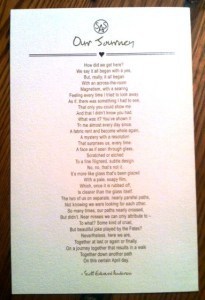 Our Journey
How did we get here?
We say it all began with a yes,
But, really, it all began
With an across-the-room
Magnetism, with a searing
Feeling every time I tried to look away
As if, there was something I had to see,
That only you could show me
And that I didn't know you felt.
What was it? You've shown it
To me almost every day since.
A fabric rent and become whole again.
A mystery with a resolution
That surprises us, every time
A face as if seen through glass,
Scratched or etched
To a fine filigreed, subtle design.
No, no, that's not it.
It's more like glass that's been glazed
With a pale, soapy film,
Which, once it is rubbed off,
Is clearer than the glass itself.
The two of us on separate, nearly parallel paths,
Not knowing we were looking for each other.
So many times, our paths nearly crossed,
But didn't. Near misses we can only attribute to -
To what? Some kind of cruel,
But beautiful joke played by the Fates?
Nevertheless, here we are,
Together at last or again or finally
On a journey together that results in a walk
Together down another path
On this certain April day.
- Scott Edward Anderson